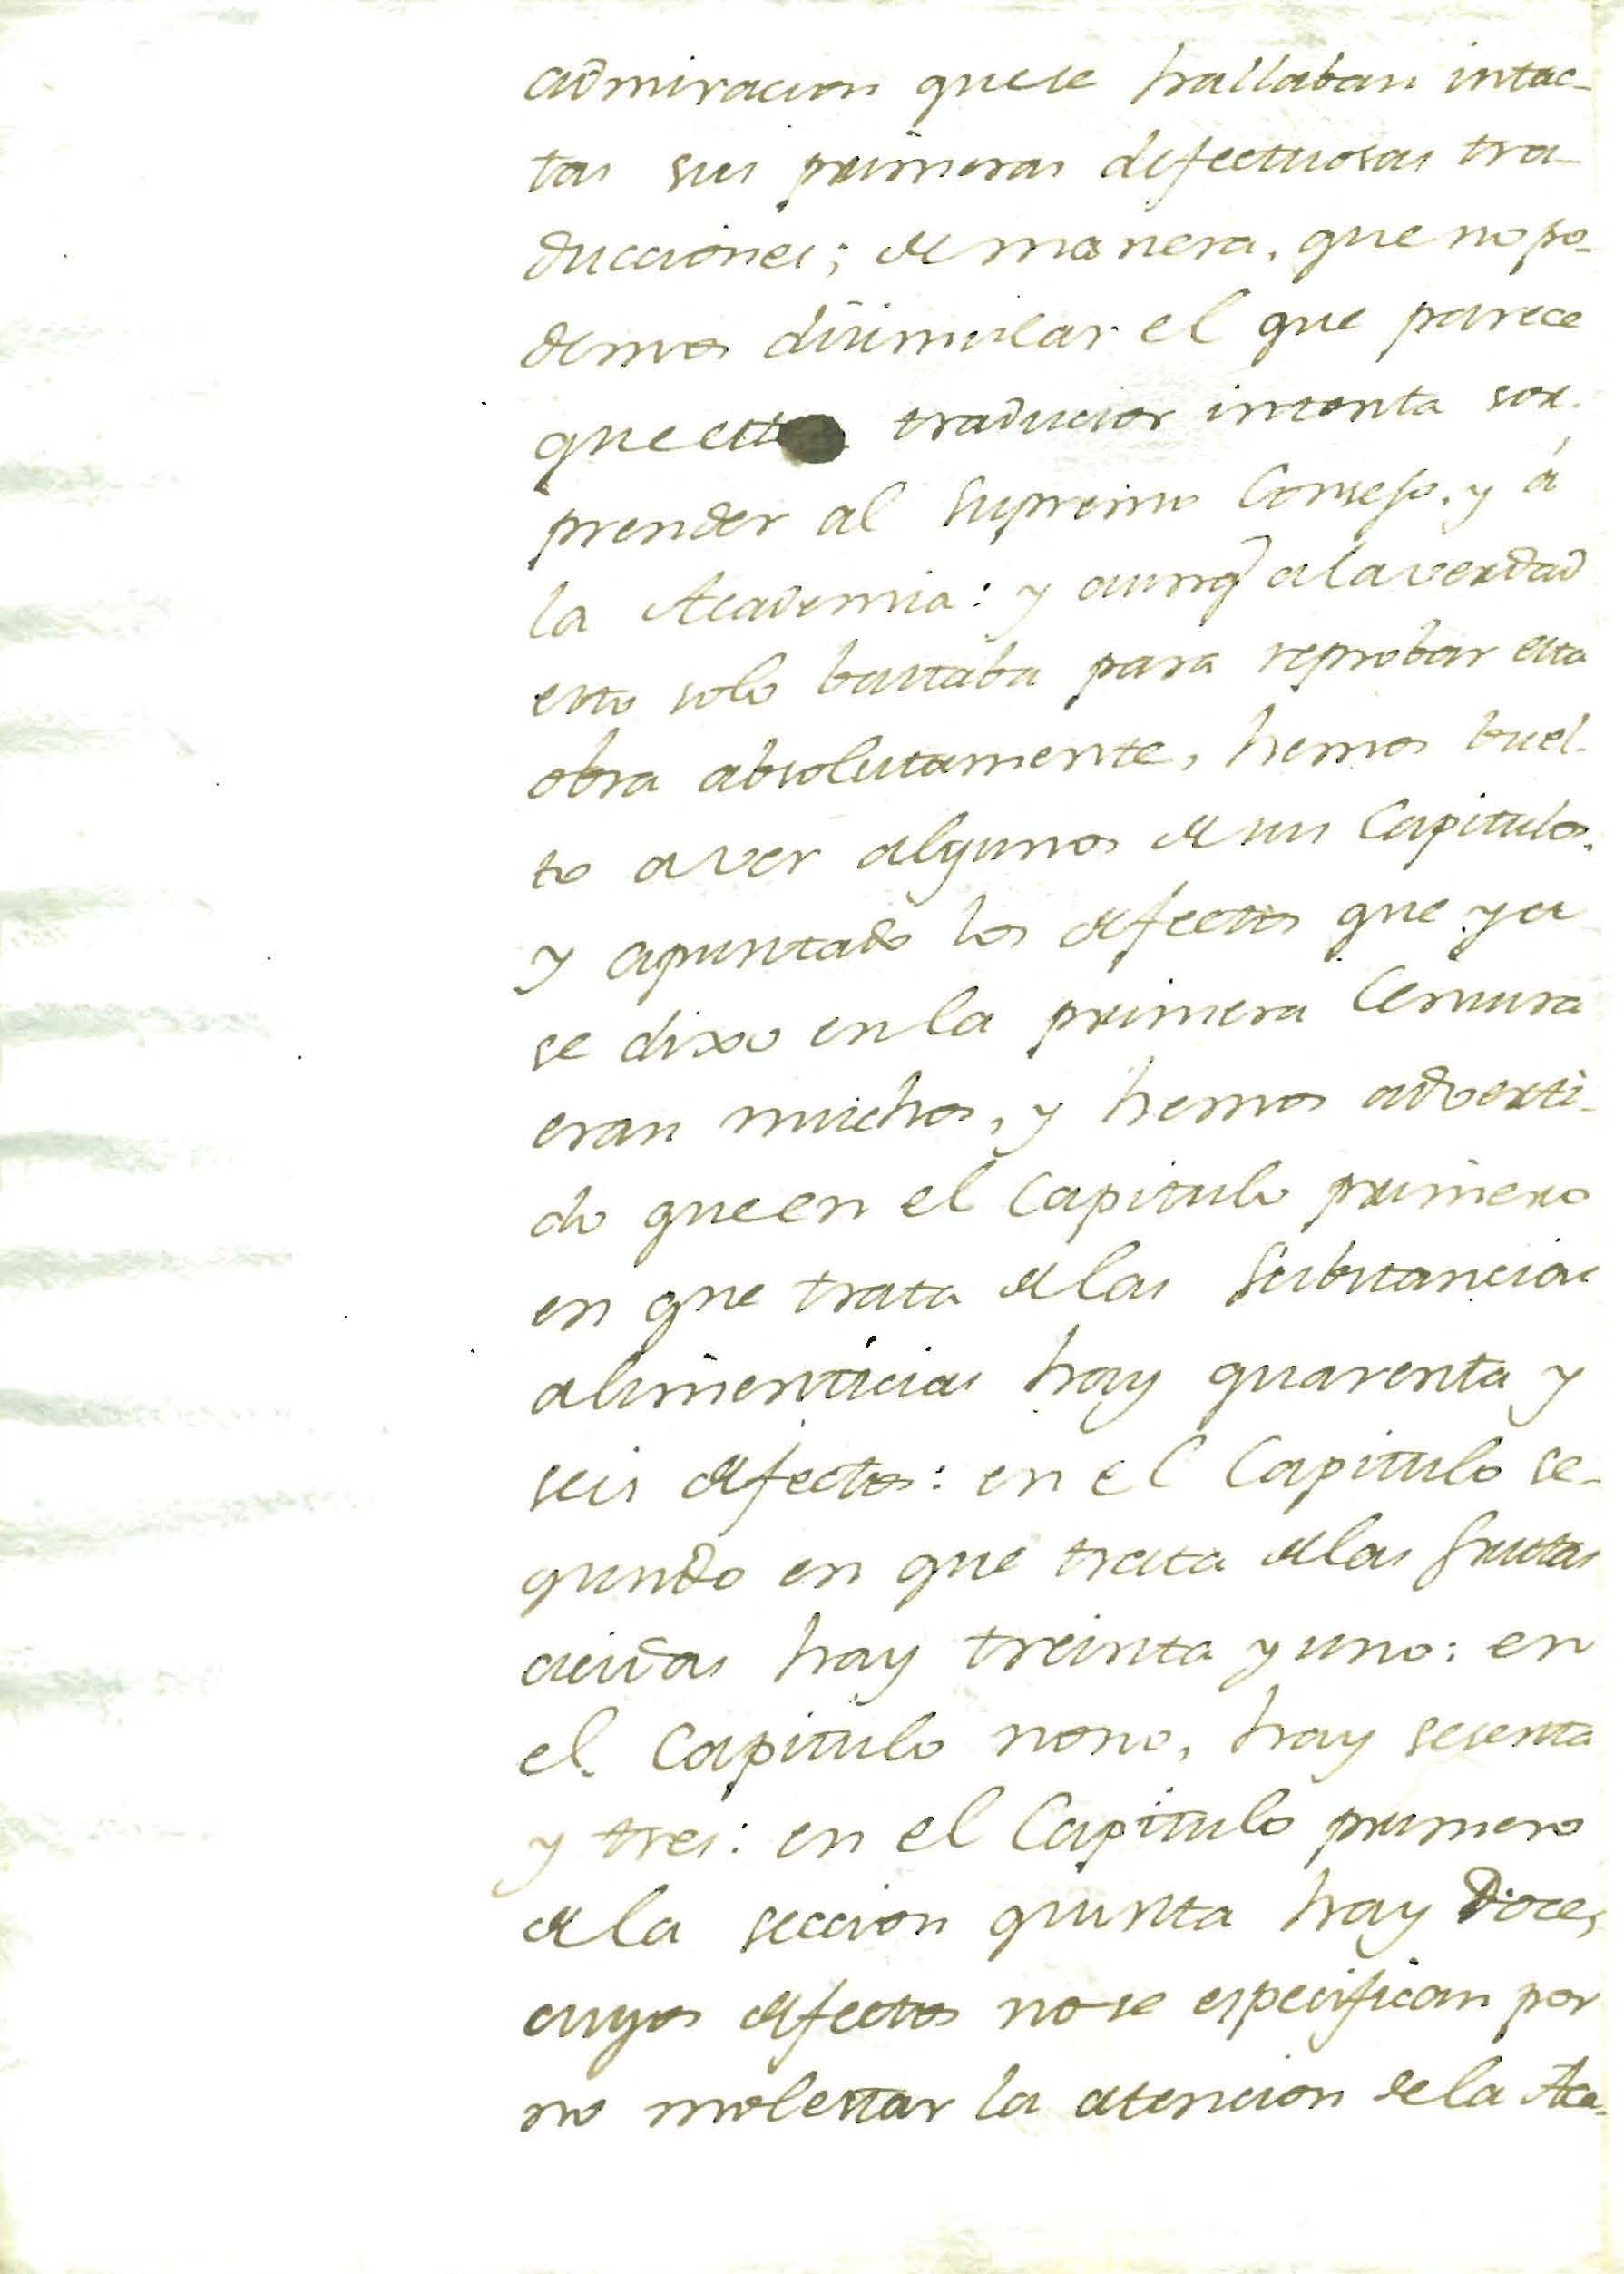 admiracion que se hallaban intac-
tas sus primeras defectuosas tra-
ducciones; de manera, que no po-
demos disimular el que parece
que este traductor intenta sor-
prender al Supremo Consejo, y á
la Academia: y aunq̃ a la verdad
esto solo bastaba para reprobar esta
obra absolutamente, hemos buel-
to a ver algunos de sus Capitulos,
y apuntado los defectos que ya
se dixo en la primera Censura
eran muchos, y hemos adverti-
do que en el Capitulo primero
en que trata de las Substancias
alimenticias hay quarenta y
seis defectos: en el Capitulo se-
gundo en que trata de las frutas
acidas hay treinta y uno: en
el Capitulo nono, hay sesenta
y tres: en el Capitulo primero
de la seccion quinta hay Doce,
cuyos defectos no se especifican por
no molestar la atencion de la Aca-